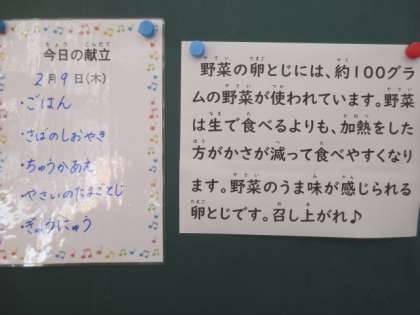 今日の献立
2月9日(木)
・ごはん
・さばのしおやき
・ちゅうかあえ
・やさいのたまごとじ
・ぎゅうにゅう
野菜の卵とじには、約100グラ
ムの野菜が使われています。野菜
は生で食べるよりも、加熱をした
方がかさが減って食べやすくなり
ます。野菜のうま味が感じられる
卵とじです。召し上がれ♪